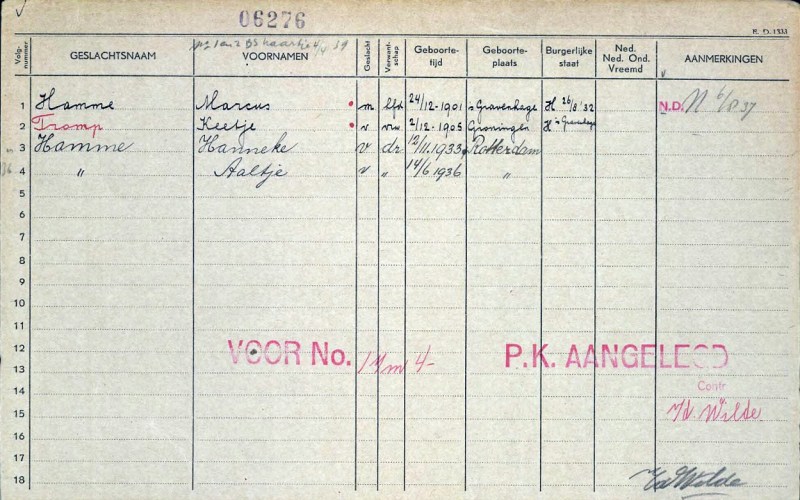 06276
E. D. 1333
Volg-nummer GESLACHTSNAAM VOORNAMEN Geslacht Verwant-schap Geboorte-tijd Geboorte-plaats Burgerlijke staat Ned. Ned. Ond. Vreemd AANMERKINGEN
1 Hamme Marcus m hfd 24/12-1901 's Gravenhage H 26/8 '32 N.D.
2 Tromp Keetje v vrw 2/12-1905 Groningen H 's Gravenhage
3 Hamme Hanneke v dr 12/11.1933 Rotterdam
4 " Aaltje v " 14/6 1936 "
5
6
7
8
9
10
11
12
VOOR No. 1 t/m 4 P.K. AANGELEGD
13
Contr
14
15
v/d. Wilde.
16
17
18